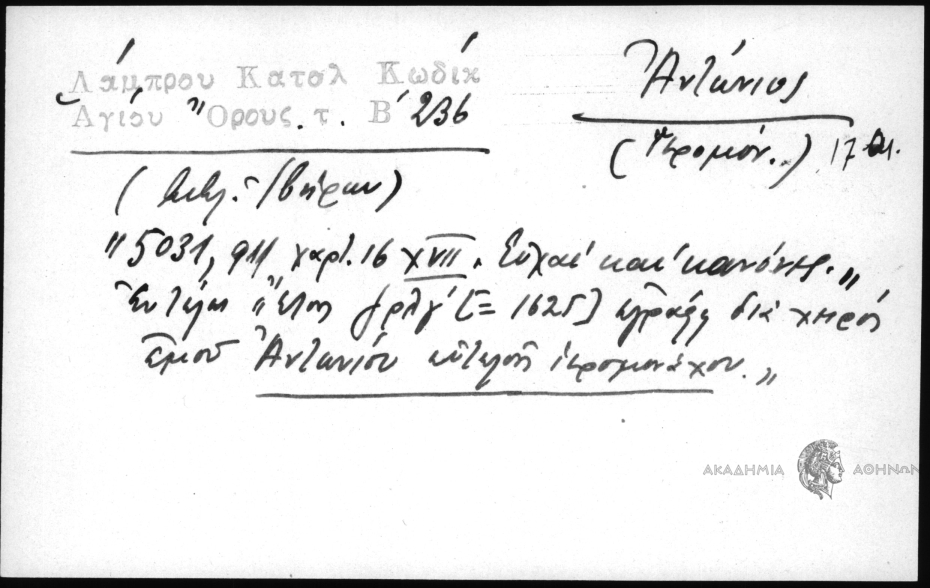 Λάμπρου Κατολ Κωδικ
Ἁγίου Ὄρους. τ. Β΄ 236
Ἀντώνιος
(ἱερομόν..) 17 αι.
(Μον. Ἰβήρων)
"5031, 911 χαρτ. 16 XVII. Εὐχαί καί κανόνες."
Ἐν τέλει "Ἔτος ͵ζρλγ΄ [= 1625] ἐγράφη διά χειρός
ἐμοῦ Ἀντωνίου εὐτελοῦς ἱερομονάχου."
ΑΚΑΔΗΜΙΑ ΑΘΗΝΩΝ